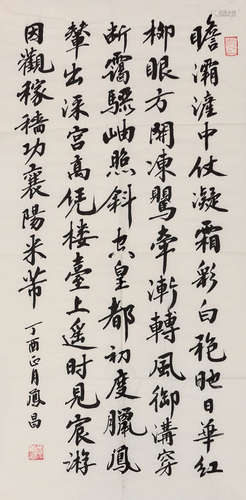 瞻灞滻中仗凝霜彩白袍映日華紅
柳眼方開凍鸎牽漸轉風御溝穿
斷靄驪岫照斜空皇都初度臘鳳
輦出深宮高凭樓臺上遥時見宸游
因觀稼穡功襄陽米芾
丁酉正月鳳昌